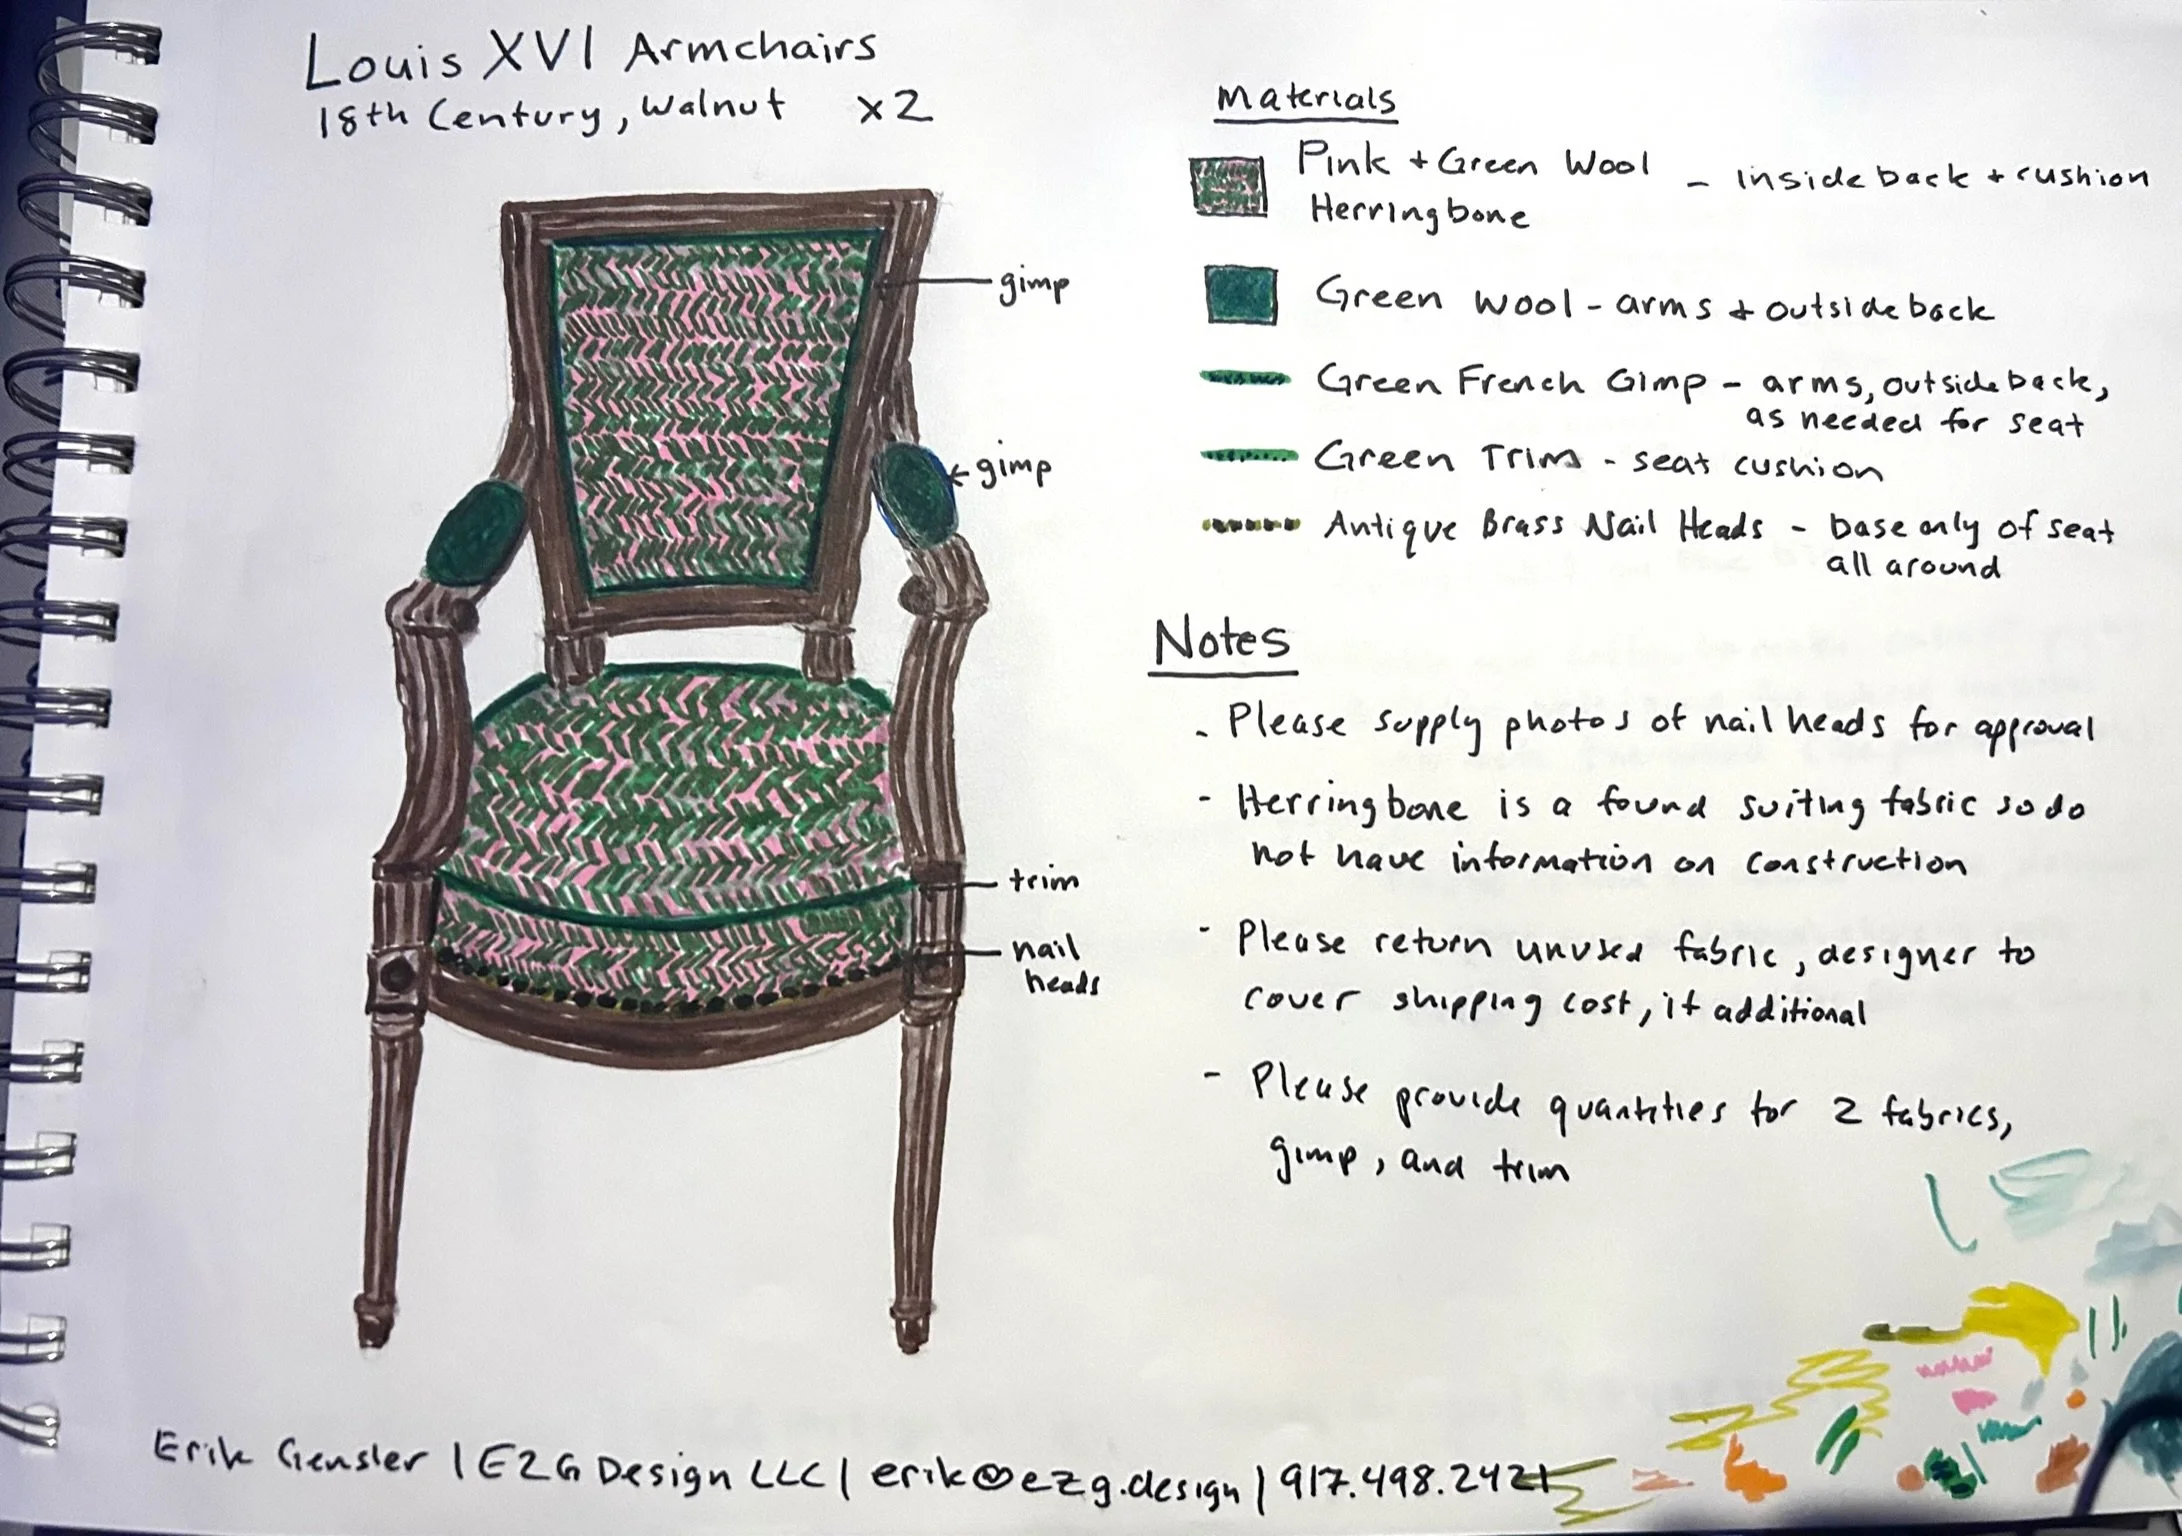 Louis XVI Armchairs
18th Century, Walnut x2
gimp
gimp
trim
nail
heads
Materials
Pink + Green Wool - inside back + cushion
Herringbone
Green Wool - arms + outside back
Green French Gimp - arms, outside back,
as needed for seat
Green Trim - seat cushion
Antique Brass Nail Heads - base only of seat
all around
Notes
- Please supply photos of nail heads for approval
- Herringbone is a found suiting fabric so do
not have information on construction
- Please return unused fabric, designer to
cover shipping cost, if additional
- Please provide quantities for 2 fabrics,
gimp, and trim
Erik Gensler | EZG Design LLC | erik@ezg.design | 917.498.2421